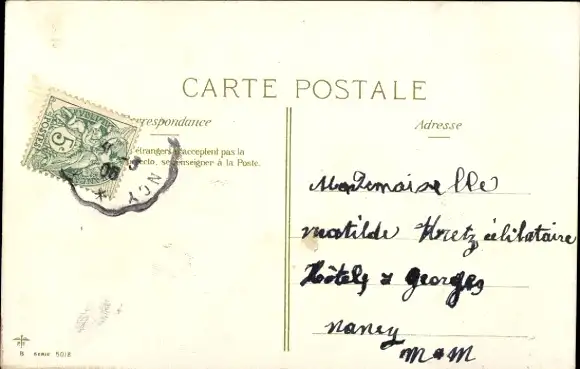 CARTE POSTALE
Correspondance
Adresse
étrangers n'acceptent pas la
recto, se renseigner à la Poste.
POSTES
5c
4 - 3
06
NCY
*
Mademoiselle
matilde Kretz célibataire
Hôtels & Georges
nancy
M & M
B SERIE 5018